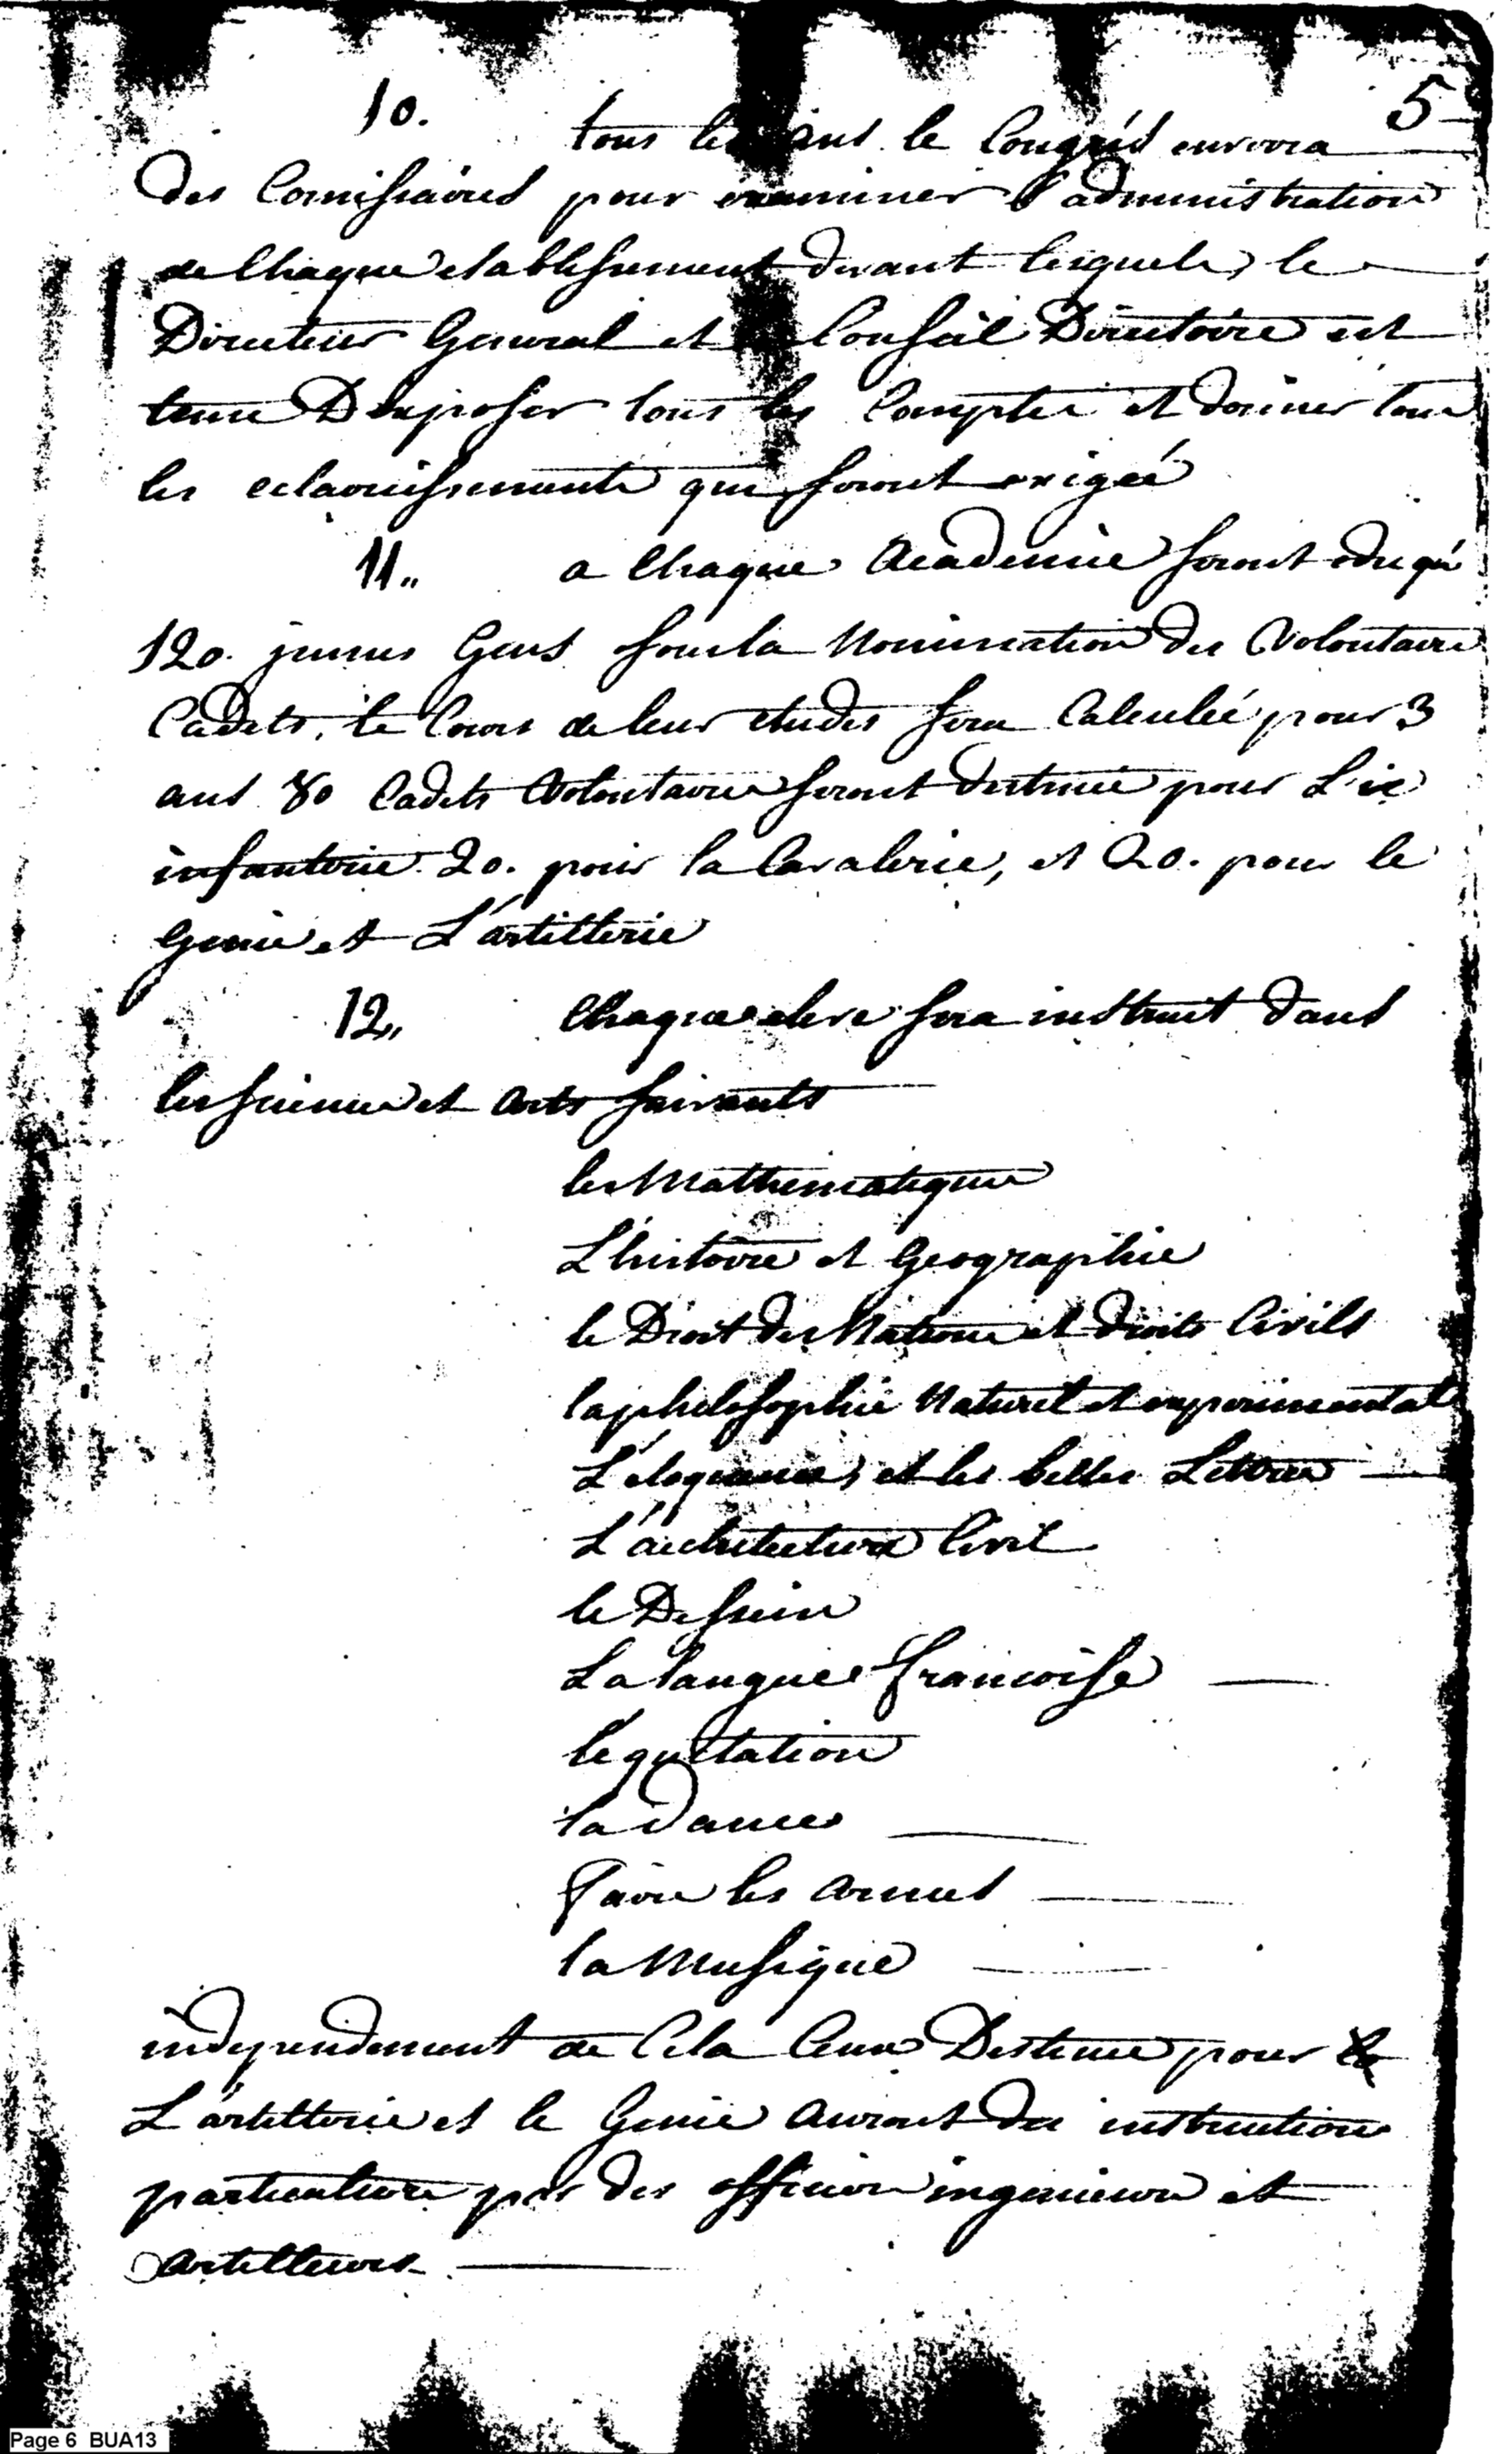 5
10. tous les ans le Congrés enverra
des Comissaires pour examiner l'administration
de Chaque etablissement devant lesquels le
Directeur General et le Conseil Directoire est
tenu D'exposer tous les Comptes et donner tous
les eclaircissements qui seront exigés
11„ a Chaque Academie seront eduqué
120. jeunes Gens sous la Nomination des Volontaires
Cadets, le Cours de leur etudes sera Calculé pour 3
ans 80 Cadets Volontaires seront destinés pour L'in
infanterie 20. pour la Cavalerie, et 20. pour le
Genie et L'artillerie
12„ Chaque eleve sera instruit dans
les sciences et Arts suivants
les Mathematiques
L'histoire et Geographie
le Droit des Nations et droits Civils
la philosophie Naturel et experimental
L'eloquence, et les belles Lettres
L'architecture Civil
le Dessein
La langue francoise
l'equitation
la dance
Faire les armes
la Musique
independement de Cela Ceux Destinés pour la
L'artillerie et le Genie auront des instructions
particulieres par des officiers ingenieurs et
Artilleurs
Page 6 BUA13